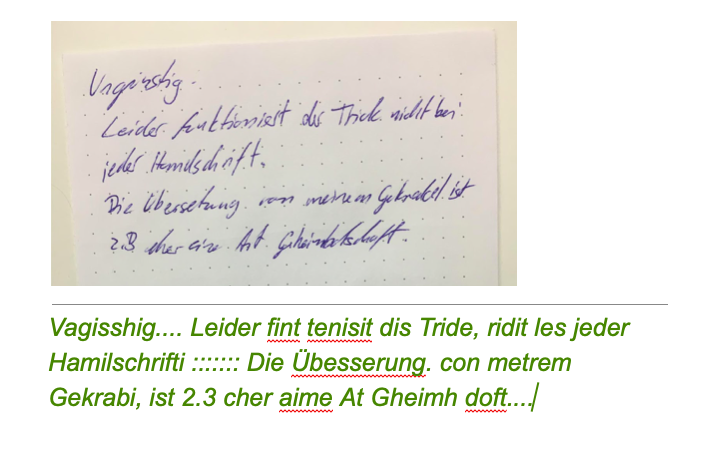 Ungünstig.
Leider funktioniert der Trick nicht bei
jeder Handschrift.
Die Übersetzung von meinem Gekrakel ist
z.B eher eine Art Geheimbotschaft.
Vagisshig.... Leider fint tenisit dis Tride, ridit les jeder
Hamilschrifti ::::::: Die Übesserung. con metrem
Gekrabi, ist 2.3 cher aime At Gheimh doft....